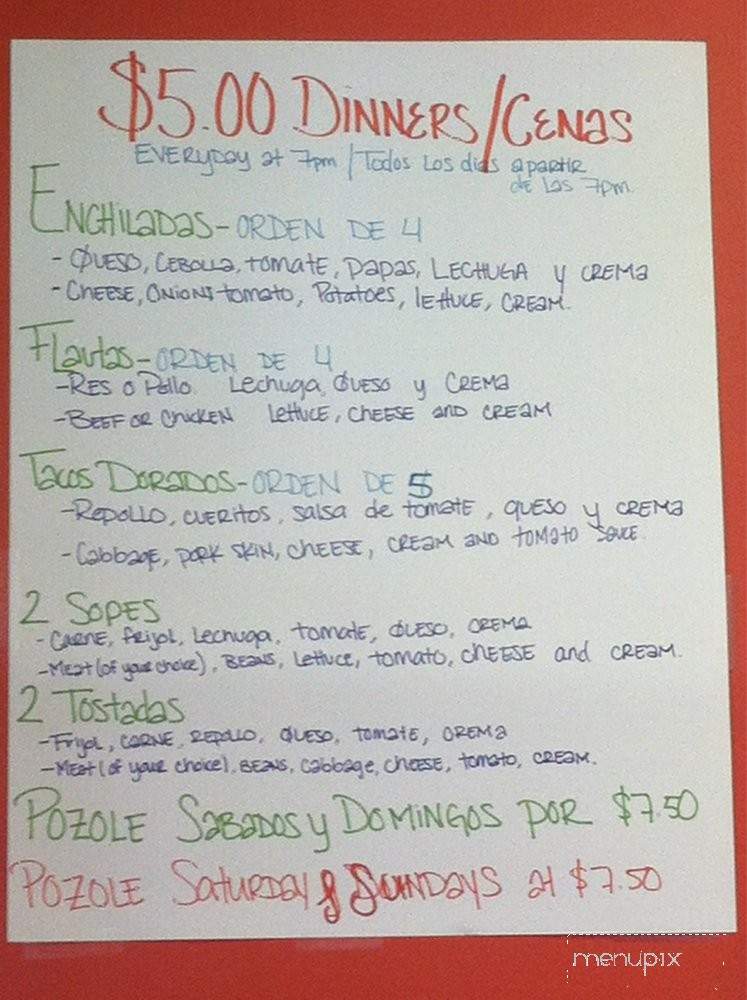 $5.00 DINNERS/CENAS
EVERYDAY at 7pm / Todos Los dias apartir
de las 7pm.
ENCHILADAS - ORDEN DE 4
- QUESO, CEBOLLA, tomatE, papas, LECHUGA y CREMA
- CHEESE, ONIONS tomato, Potatoes, lEttUCE, CREAM.
Flautas - ORDEN DE 4
- RES o Pollo Lechuga, QUESO y CREMA
- BEEF OR ChicKEN lettuce, CHEESE and CREAM
Tacos DORADOS - ORDEN DE 5
- REpOLLO, CUERITOS, salsa de tomatE, QUESO y CREMA
- Cabbage, PORK SKIN, CHEESE, CREAM AND tOMAtO SAUCE.
2 SOPES
- CARNE, frijol, Lechuga, tomatE, QUESO, CREMA
- MEAt (of your choice), BEANS, Lettuce, tomato, CHEESE and CREAM.
2 Tostadas
- Frijol, CARNE, REpOLLO, QUESO, tomatE, CREMA
- MEAt (of your choice), BEANS, Cabbage, CHEESE, tomato, CREAM.
POZOLE SABADOS y DOMINGOS POR $7.50
POZOLE SatURDAY & SUNDAYS at $7.50
menupix